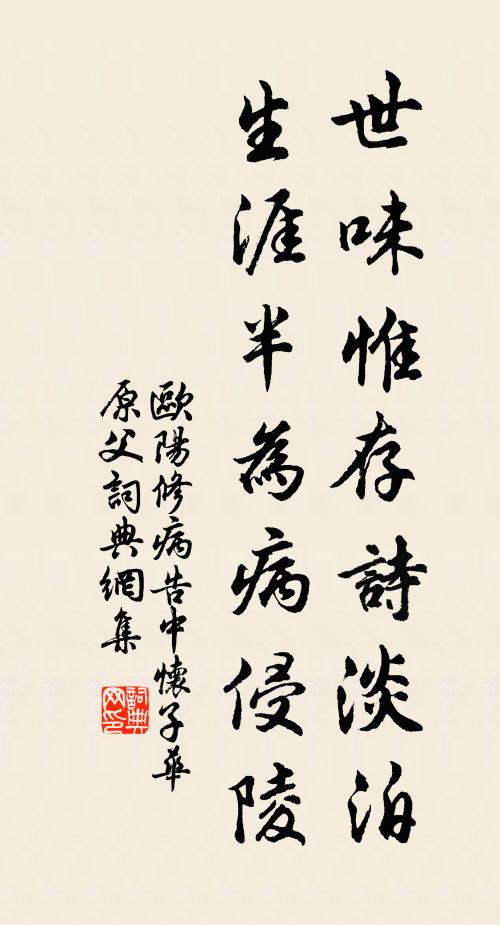 世味惟存詩淡泊
生涯半為病侵陵
歐陽修病告中懷子華
原父詞典網集
詞典
网印